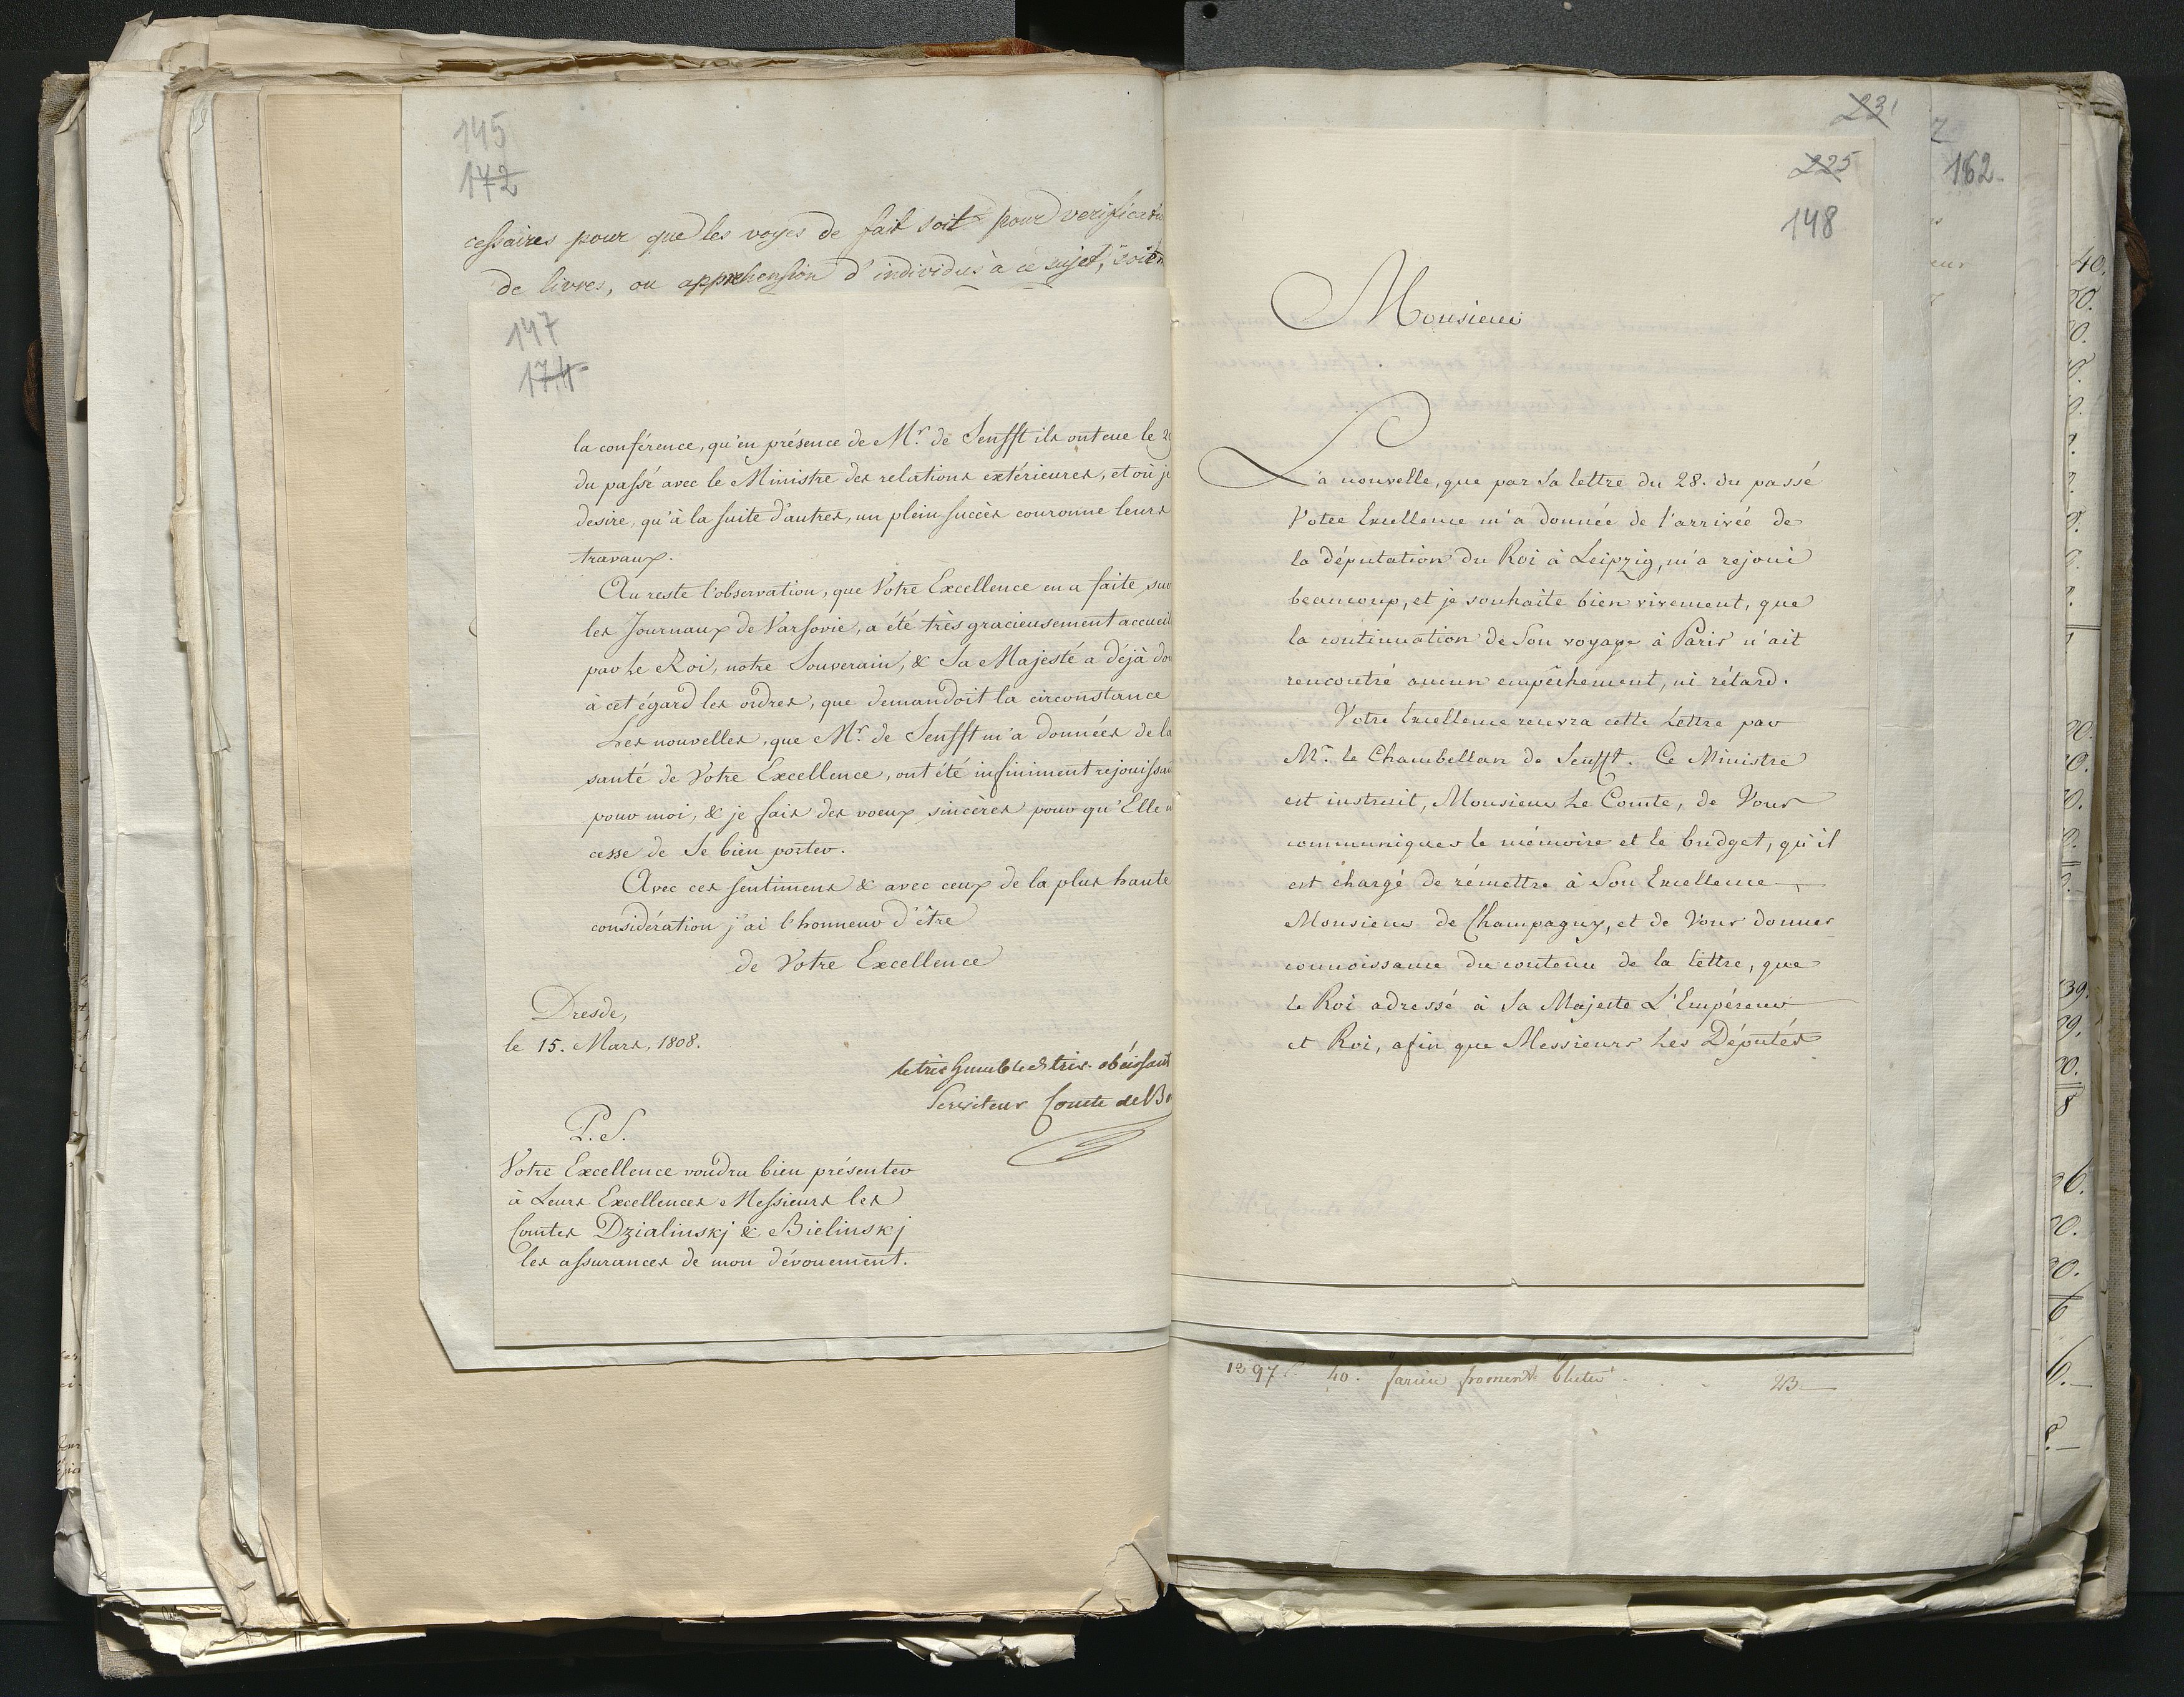 145
172
cessaires pour que les voyes de fait soit pour verificatio
de livres, ou apprehension d'individus à ce sujet, soien
147
174
la conférence, qu'en présence de Mr. de Senfft ils ont eue le 2
du passé avec le Ministre des relations extérieures, et où je
desire, qu'à la suite d'autres, un plein succès couronne leurs
travaux.
Au reste l'observation, que Votre Excellence en a faite sur
les Journaux de Varsovie, a été très gracieusement accueil
par Le Roi, notre Souverain, & Sa Majesté a déjà don
à cet égard les ordres, que demandoit la circonstance
Les nouvelles, que Mr. de Senfft m'a données de la
santé de Votre Excellence, ont été infiniment rejouissan
pour moi, & je fais des voeux sincères pour qu'Elle n
cesse de Se bien porter.
Avec ces sentimens & avec ceux de la plus haute
considération j'ai l'honneur d'être
de Votre Excellence
Dresde,
le 15. Mars, 1808.
le très humble & très-obéissant
Serviteur Comte de Bo
P.S.
Votre Excellence voudra bien présenter
à Leurs Excellences Messieurs les
Comtes Dzialinskj & Bielinskj
les assurances de mon dévouement.
231
225
148
Monsieur
La nouvelle, que par Sa lettre du 28. du passé
Votre Excellence m'a donnée de l'arrivée de
la députation du Roi à Leipzig, m'a rejoui
beaucoup, et je souhaite bien vivement, que
la continuation de Son voyage à Paris n'ait
rencontré aucun empêchement, ni rétard.
Votre Excellence recevra cette Lettre par
Mr. le Chambellan de Senfft. Ce Ministre
est instruit, Monsieur Le Comte, de Vous
communiquer le mémoire et le budget, qu'il
est chargé de rémettre à Son Excellence
Monsieur de Champagny, et de Vous donner
connoissance du contenu de la lettre, que
le Roi adressé à Sa Majeste L'Empéreur
et Roi, afin que Messieurs Les Députés
1297. 40. farine froment bluté 23
162.